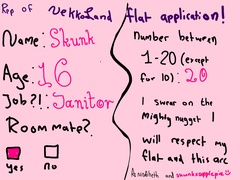 Rep of Nekkoland flat application!
Name: Skunk
Age: 16
Job?!: Janitor
Roommate?
Yes No
Number between
1-20 (except
for 10): 20
I swear on the
Mighty nugget I
will respect my
flat and this arc
and skunkzapplepie